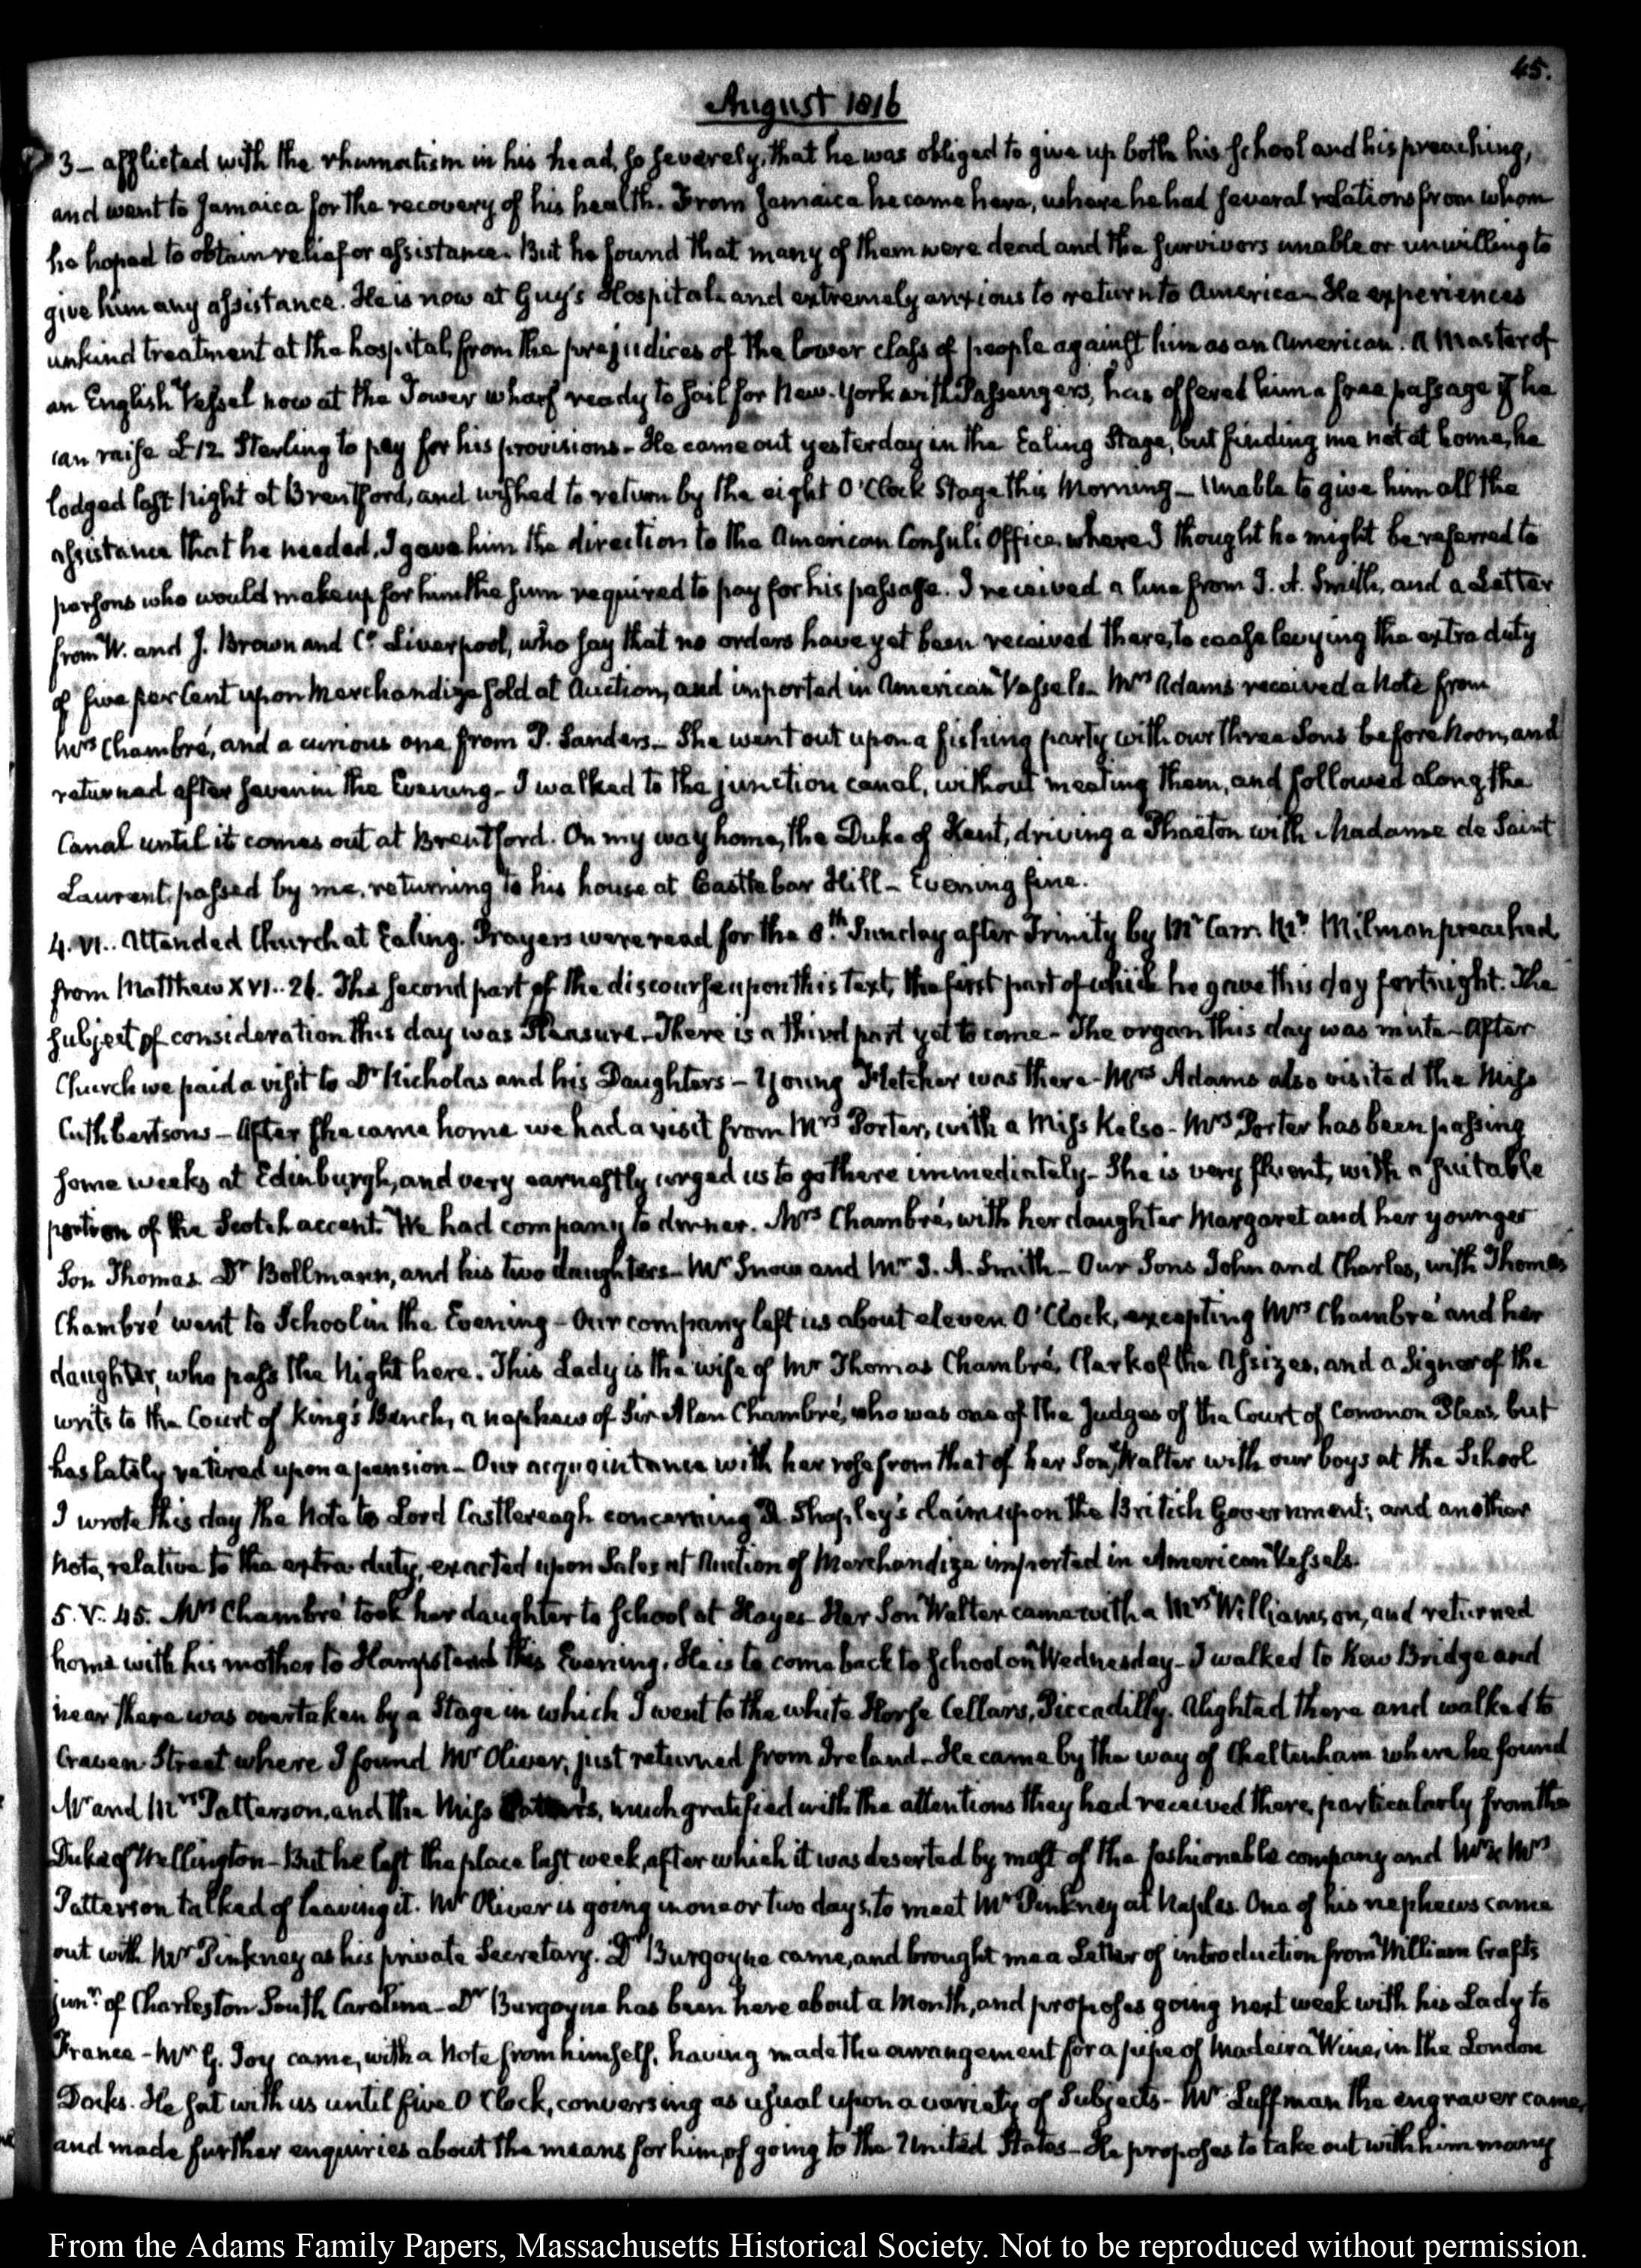 45.
August 1816
3 - afflicted with the rhumatism in his head, so severely, that he was obliged to give up both his school and his preaching,
and went to Jamaica for the recovery of his health. From Jamaica he came here, where he had several relations from whom
he hoped to obtain relief or assistance. But he found that many of them were dead and the survivors unable or unwilling to
give him any assistance. He is now at Guy's Hospital and extremely anxious to return to America - He experiences
unkind treatment at the hospital, from the prejudices of the lower class of people against him as an American. A Master of
an English Vessel now at the Tower wharf ready to sail for New-York with Passengers, has offered him a free passage if he
can raise £12 Sterling to pay for his provisions - He came out yesterday in the Ealing Stage, but finding me not at home, he
lodged last Night at Brentford, and wished to return by the eight O'Clock Stage this Morning - Unable to give him all the
assistance that he needed, I gave him the direction to the American Consul's Office, where I thought he might be referred to
persons who would make up for him the sum required to pay for his passage. I received a line from J. A. Smith, and a Letter
from W. and J. Brown and Co. Liverpool, who say that no orders have yet been received there, to cease levying the extra duty
of five per Cent upon Merchandize sold at Auction, and imported in American Vessels - Mrs Adams received a Note from
Mrs Chambré, and a curious one from P. Sanders - She went out upon a fishing party with our three Sons before Noon, and
returned after seven in the Evening - I walked to the junction canal, without meeting them, and followed along the
Canal until it comes out at Brentford. On my way home, the Duke of Kent, driving a Phaeton with Madame de Saint
Laurent, passed by me, returning to his house at Castlebar Hill - Evening fine.
4. VI.. Attended Church at Ealing. Prayers were read for the 8th Sunday after Trinity by Mr Carr. Mr Milman preached
from Matthew XVI..26. The second part of the discourse upon this text, the first part of which he gave this day fortnight. The
subject of consideration this day was Pleasure - There is a third part yet to come - The organ this day was mute - After
Church we paid a visit to Dr Nicholas and his Daughters - Young Fletcher was there - Mrs Adams also visited the Miss
Cuthbertsons - After she came home we had a visit from Mrs Porter, with a Miss Kelso - Mrs Porter has been passing
some weeks at Edinburgh, and very earnestly urged us to go there immediately - She is very fluent, with a suitable
portion of the Scotch accent. We had company to dinner. Mrs Chambré, with her daughter Margaret and her younger
Son Thomas. Dr Bollmann, and his two daughters - Mr Snow and Mr J. A. Smith - Our Sons John and Charles, with Thomas
Chambré went to School in the Evening - Our company left us about eleven O'Clock, excepting Mrs Chambré and her
daughter, who pass the Night here. This Lady is the wife of Mr Thomas Chambré, Clerk of the Assizes, and a Signer of the
writs to the Court of King's Bench, a nephew of Sir Alan Chambré, who was one of the Judges of the Court of Common Pleas, but
has lately retired upon a pension - Our acquaintance with her rose from that of her Son, Walter with our boys at the School
I wrote this day the Note to Lord Castlereagh concerning D. Shapley's claim upon the British Government; and another
Note, relative to the extra duty, exacted upon Sales at Auction of Merchandize imported in American Vessels.
5. V. 45. Mrs Chambré took her daughter to School at Hayes - Her Son Walter came with a Mrs Williamson, and returned
home with his mother to Hampstead this Evening. He is to come back to School on Wednesday - I walked to Kew Bridge and
near there was overtaken by a Stage in which I went to the white Horse Cellars, Piccadilly. Alighted there and walked to
Craven Street where I found Mr Oliver, just returned from Ireland - He came by the way of Cheltenham where he found
Mr and Mrs Patterson, and the Miss , much gratified with the attentions they had received there, particularly from the
Duke of Wellington - But he left the place last week, after which it was deserted by most of the fashionable company and Mr & Mrs
Patterson talked of leaving it. Mr Oliver is going in one or two days, to meet Mr Pinkney at Naples. One of his nephews came
out with Mr Pinkney as his private Secretary. Dr Burgoyne came, and brought me a Letter of introduction from William Crafts
junr. of Charleston South Carolina - Dr Burgoyne has been here about a Month, and proposes going next week with his Lady to
France - Mr G. Joy came, with a Note from himself, having made the arrangement for a pipe of Madeira Wine, in the London
Docks. He sat with us until five O'Clock, conversing as usual upon a variety of Subjects - Mr Luffman the engraver came,
and made further enquiries about the means for him, of going to the United States - He proposes to take out with him many
From the Adams Family Papers, Massachusetts Historical Society. Not to be reproduced without permission.